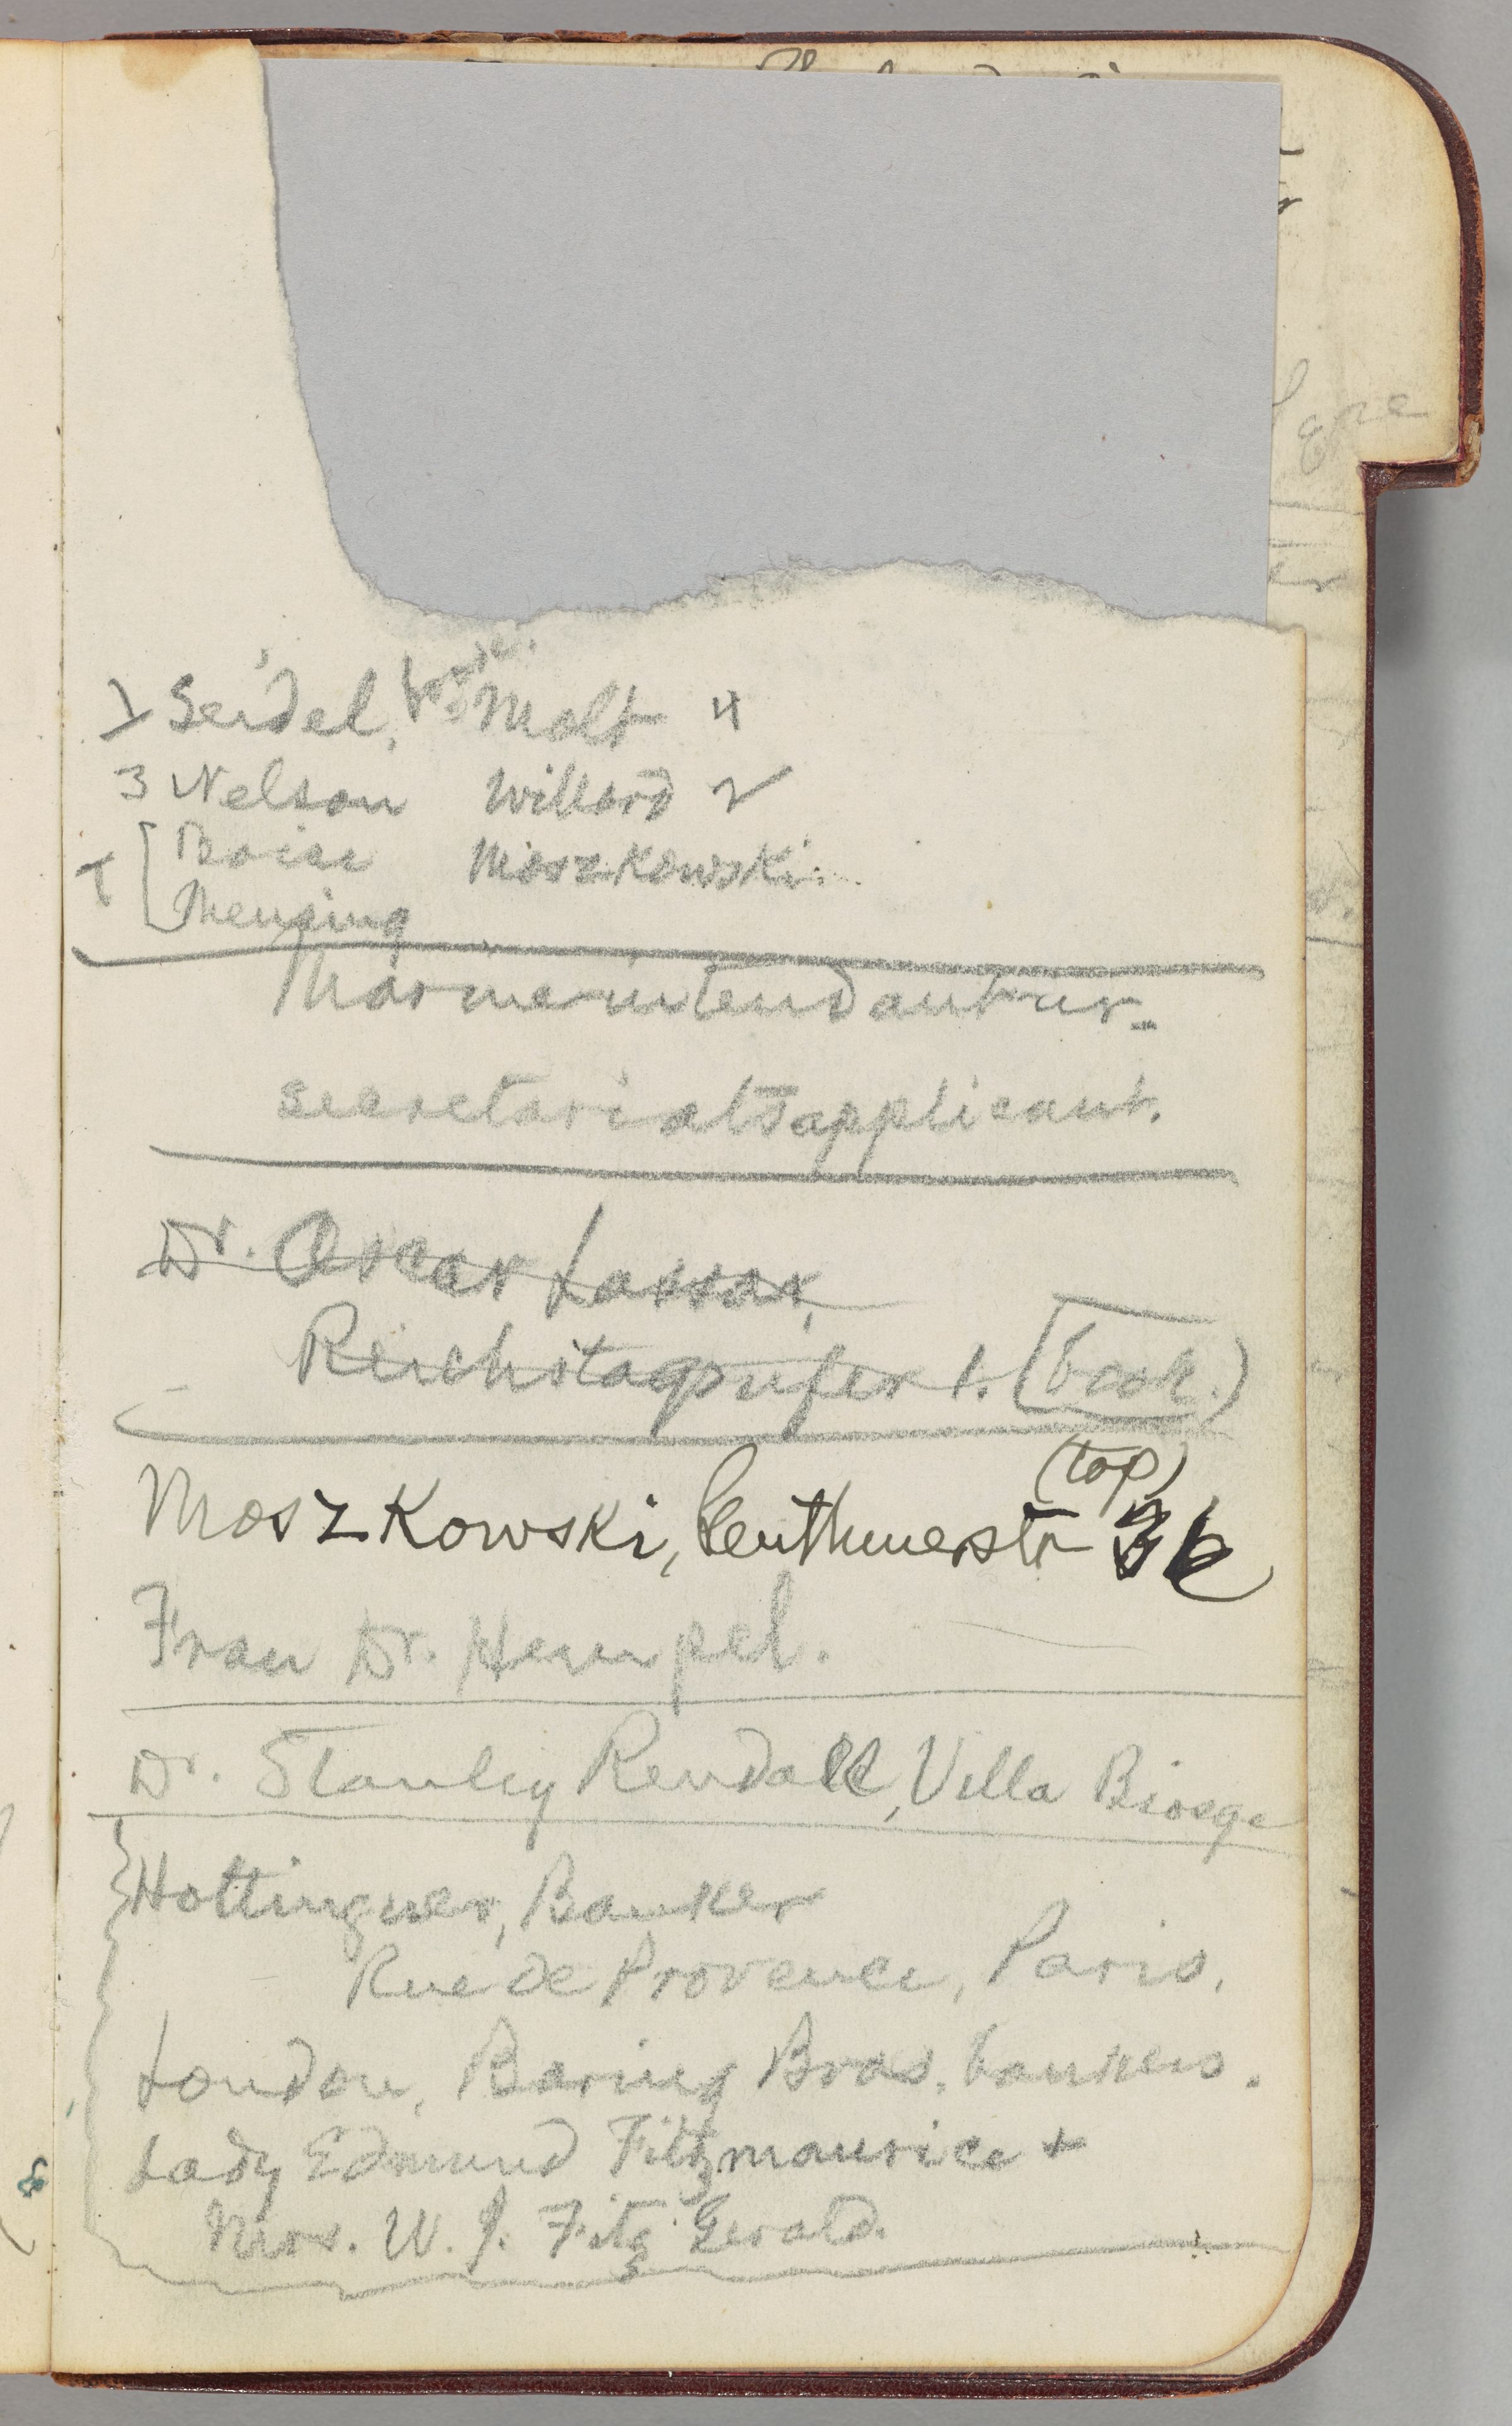 Seidel, Molt 4
3 Nelson Willard 2
1 Boise Moszkowski.
Mensing
Marineintendantur-
secretariatsapplicant.
Dr. Oscar Lassar,
Reichstagsufer 1. (book.)
(top)
Moszkowski, 36
Frau Dr. Hempel.
Dr. Stanley Rendall, Villa
Hottinguer, Banker
Rue de Provence, Paris.
London, Baring Bros. bankers.
Lady Edmund Fitzmaurice +
Mrs. W. J. Fitz Gerald.